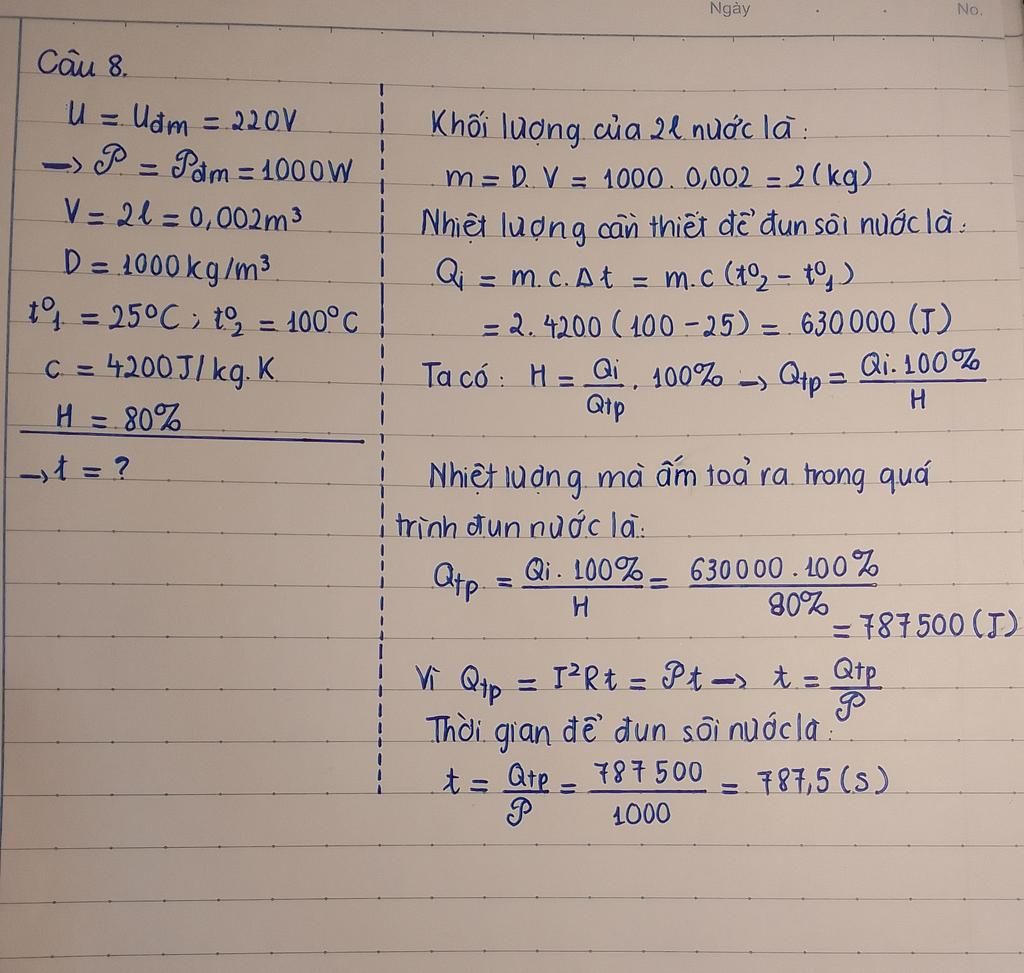 Ngày
No.
Câu 8.
U = Uđm = 220V
→ P = Pđm = 1000W
V = 2l = 0,002m³
D = 1000kg/m³
t°₁ = 25°C ; t°₂ = 100°C
c = 4200J/kg.K
H = 80%
→ t = ?
Khối lượng của 2l nước là:
m = D. V = 1000. 0,002 = 2(kg)
Nhiệt lượng cần thiết để đun sôi nước là:
Qi = m. c. Δt = m.c (t°₂ – t°₁)
= 2. 4200 (100 – 25) = 630000 (J)
Ta có: H = Qi/Qtp . 100% → Qtp = Qi. 100%/H
Nhiệt lượng mà ấm toả ra trong quá
trình đun nước là:
Qtp = Qi. 100%/H = 630000. 100%/80%
= 787500 (J)
Vì Qtp = I²Rt = Pt → t = Qtp/P
Thời gian để đun sôi nước là:
t = Qtp/P = 787 500/1000 = 787,5 (s)